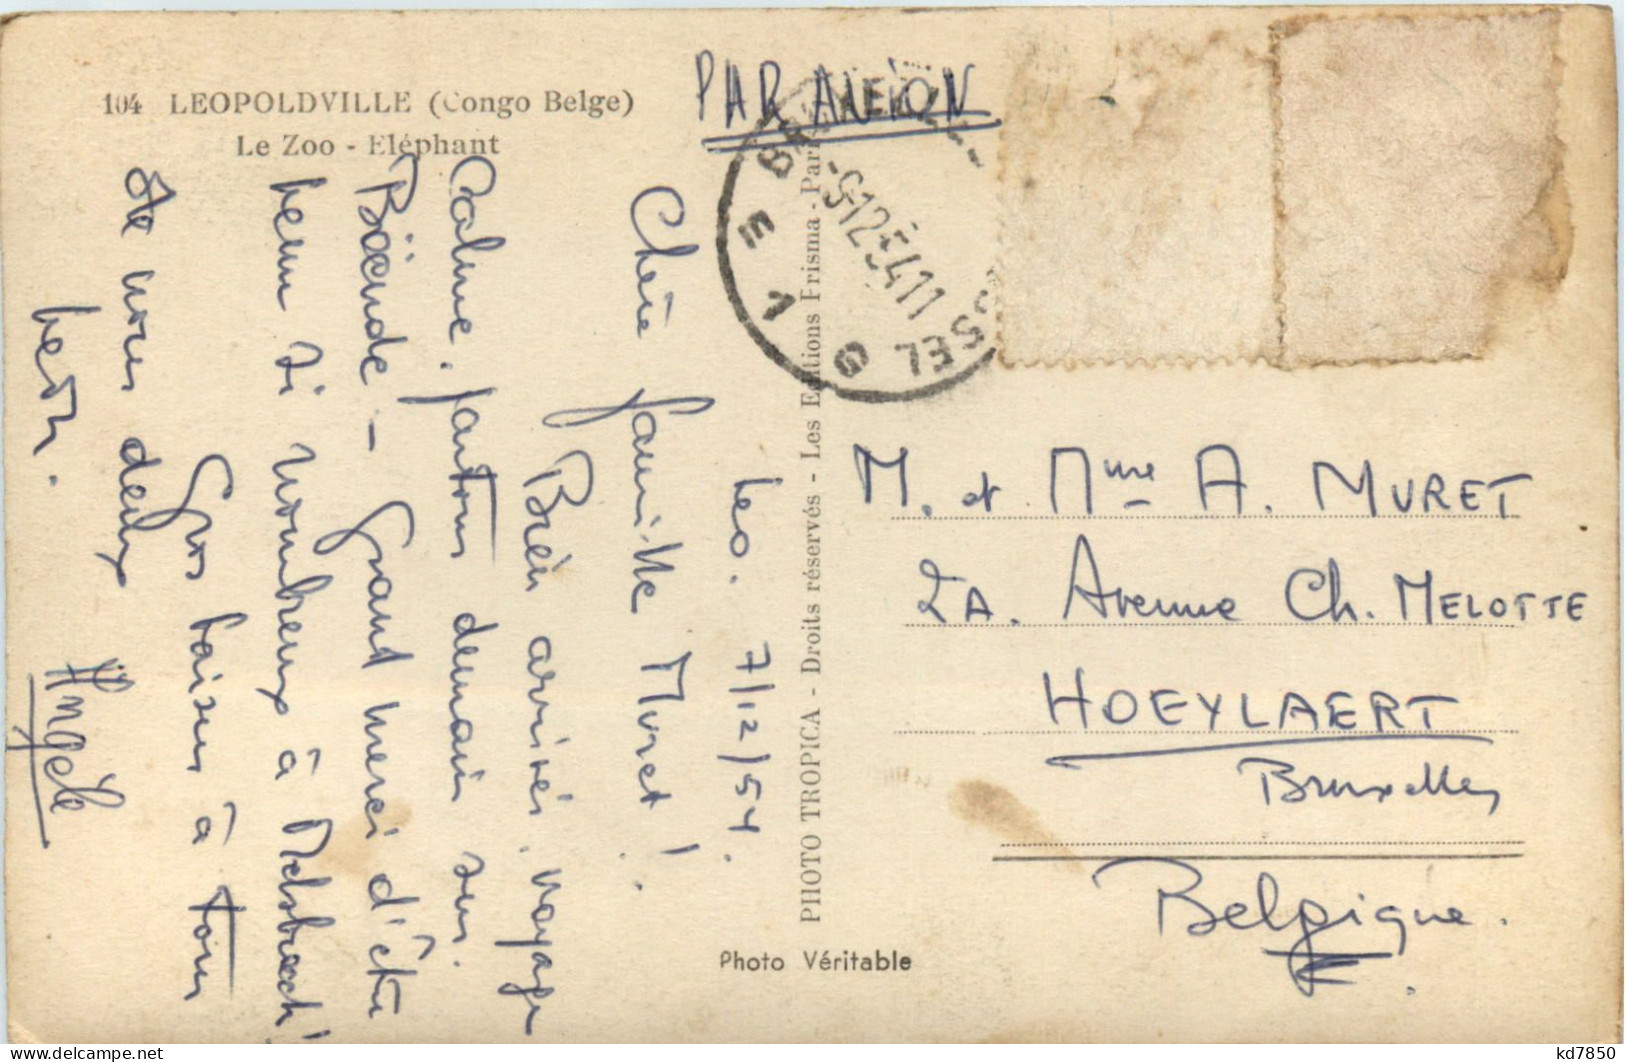 104 LEOPOLDVILLE (Congo Belge)
Le Zoo - Eléphant
PAR AVION
-9-12-54 11
Leo. 7/12/54.
Chère famille Muret!
Bien arrivés, voyage
Calme. partons demain sur
Grand merci d'être
venu si nombreux à Melsbroeck!
Gros baisers à tous
de nous deux
Angèle
PHOTO TROPICA - Droits réservés - Les Editions Prisma - Paris
Photo Véritable
M. et Mme A. MURET
2A. Avenue Ch. MELOTTE
HOEYLAERT
Bruxelles
Belgique.
kd7850